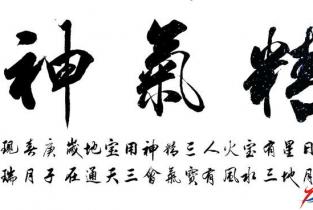 精氣神
日月
星地
有三
宝水
火風
人有
三寶
精氣
神會
用三
宝天
地通
歲在
庚子
喜月
现瑞